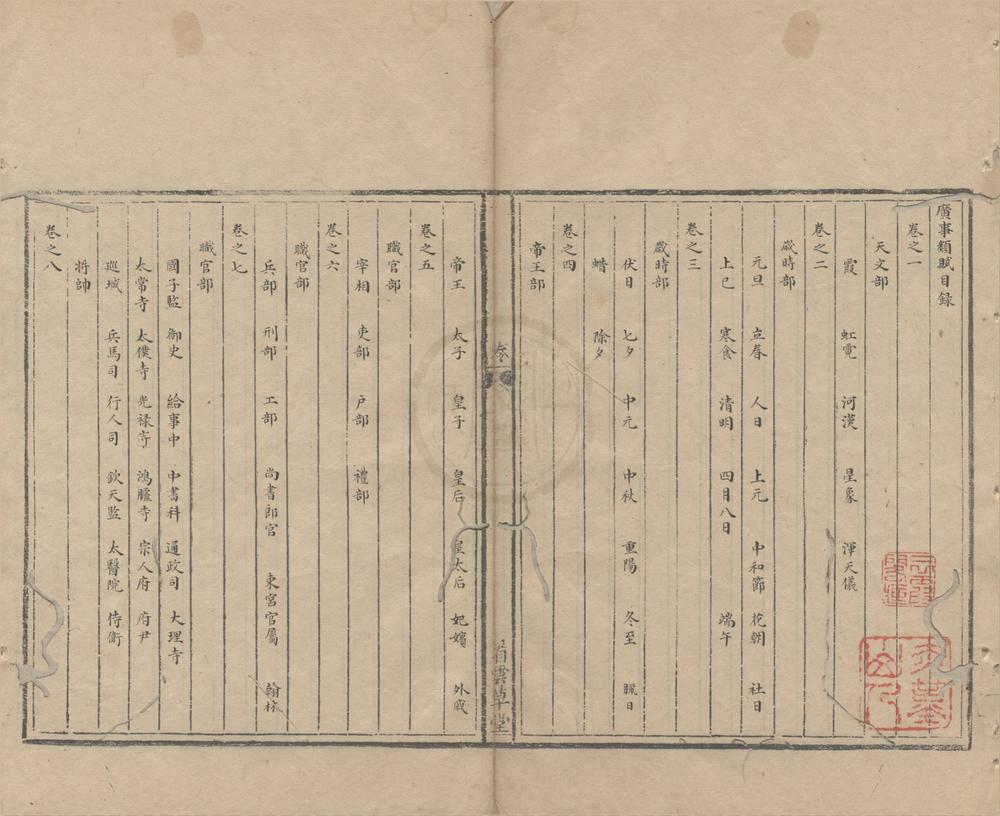 廣事類賦目錄
卷之一
天文部
霞 虹霓 河漢 星象 渾天儀
卷之二
歲時部
元旦 立春 人日 上元 中和節 花朝 社日
上巳 寒食 清明 四月八日 端午
卷之三
歲時部
伏日 七夕 中元 中秋 重陽 冬至 臘日
蜡 除夕
卷之四
帝王部
帝王 太子 皇子 皇后 皇太后 妃嬪 外戚
卷之五
職官部
宰相 吏部 戶部 禮部
卷之六
職官部
兵部 刑部 工部 尚書郎官 東宮官屬 翰林
卷之七
職官部
國子監 御史 給事中 中書科 通政司 大理寺
太常寺 太僕寺 光祿寺 鴻臚寺 宗人府 府尹
巡城 兵馬司 行人司 欽天監 太醫院 侍衛
將帥
卷之八